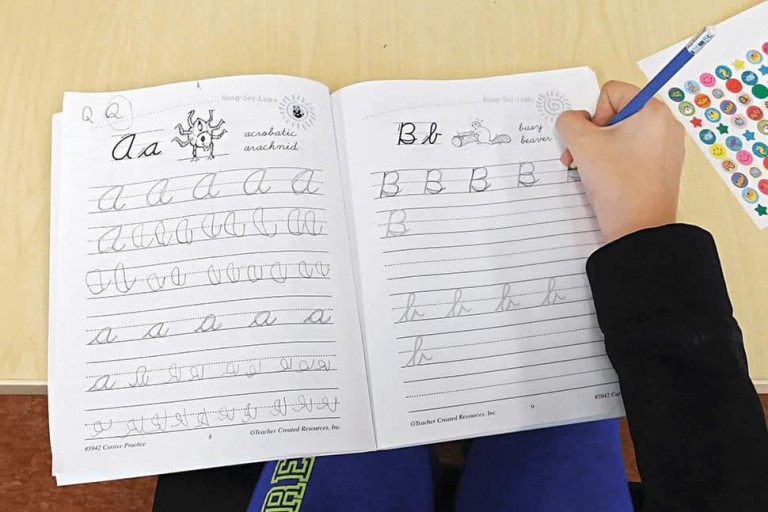 Q Q
Ready-Set-Learn
A a
acrobatic
arachnid
A A A A A
A
a a a a a
a
#5942 Cursive Practice 8 ©Teacher Created Resources, Inc.
Ready-Set-Learn
B b
busy
beaver
B B B B B
B
b b b b
b
©Teacher Created Resources, Inc. 9
RE